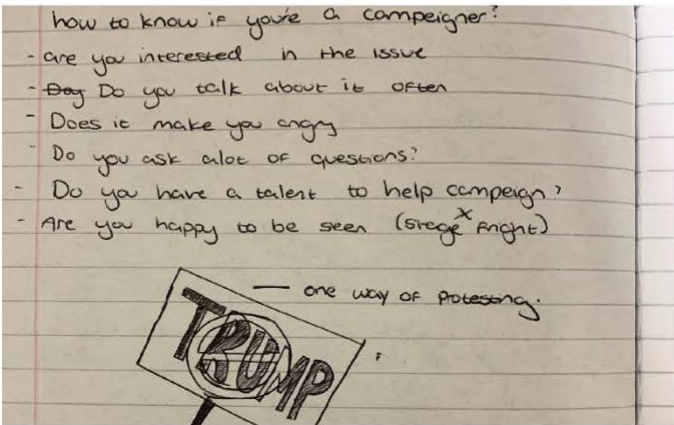 how to know if you're a campeigner?
- are you interested in the issue
- Dog Do you talk about it often
- Does it make you angry
- Do you ask alot of questions?
- Do you have a talent to help campeign?
- Are you happy to be seen (stage x fright)
— one way of Protesting.
TRUMP